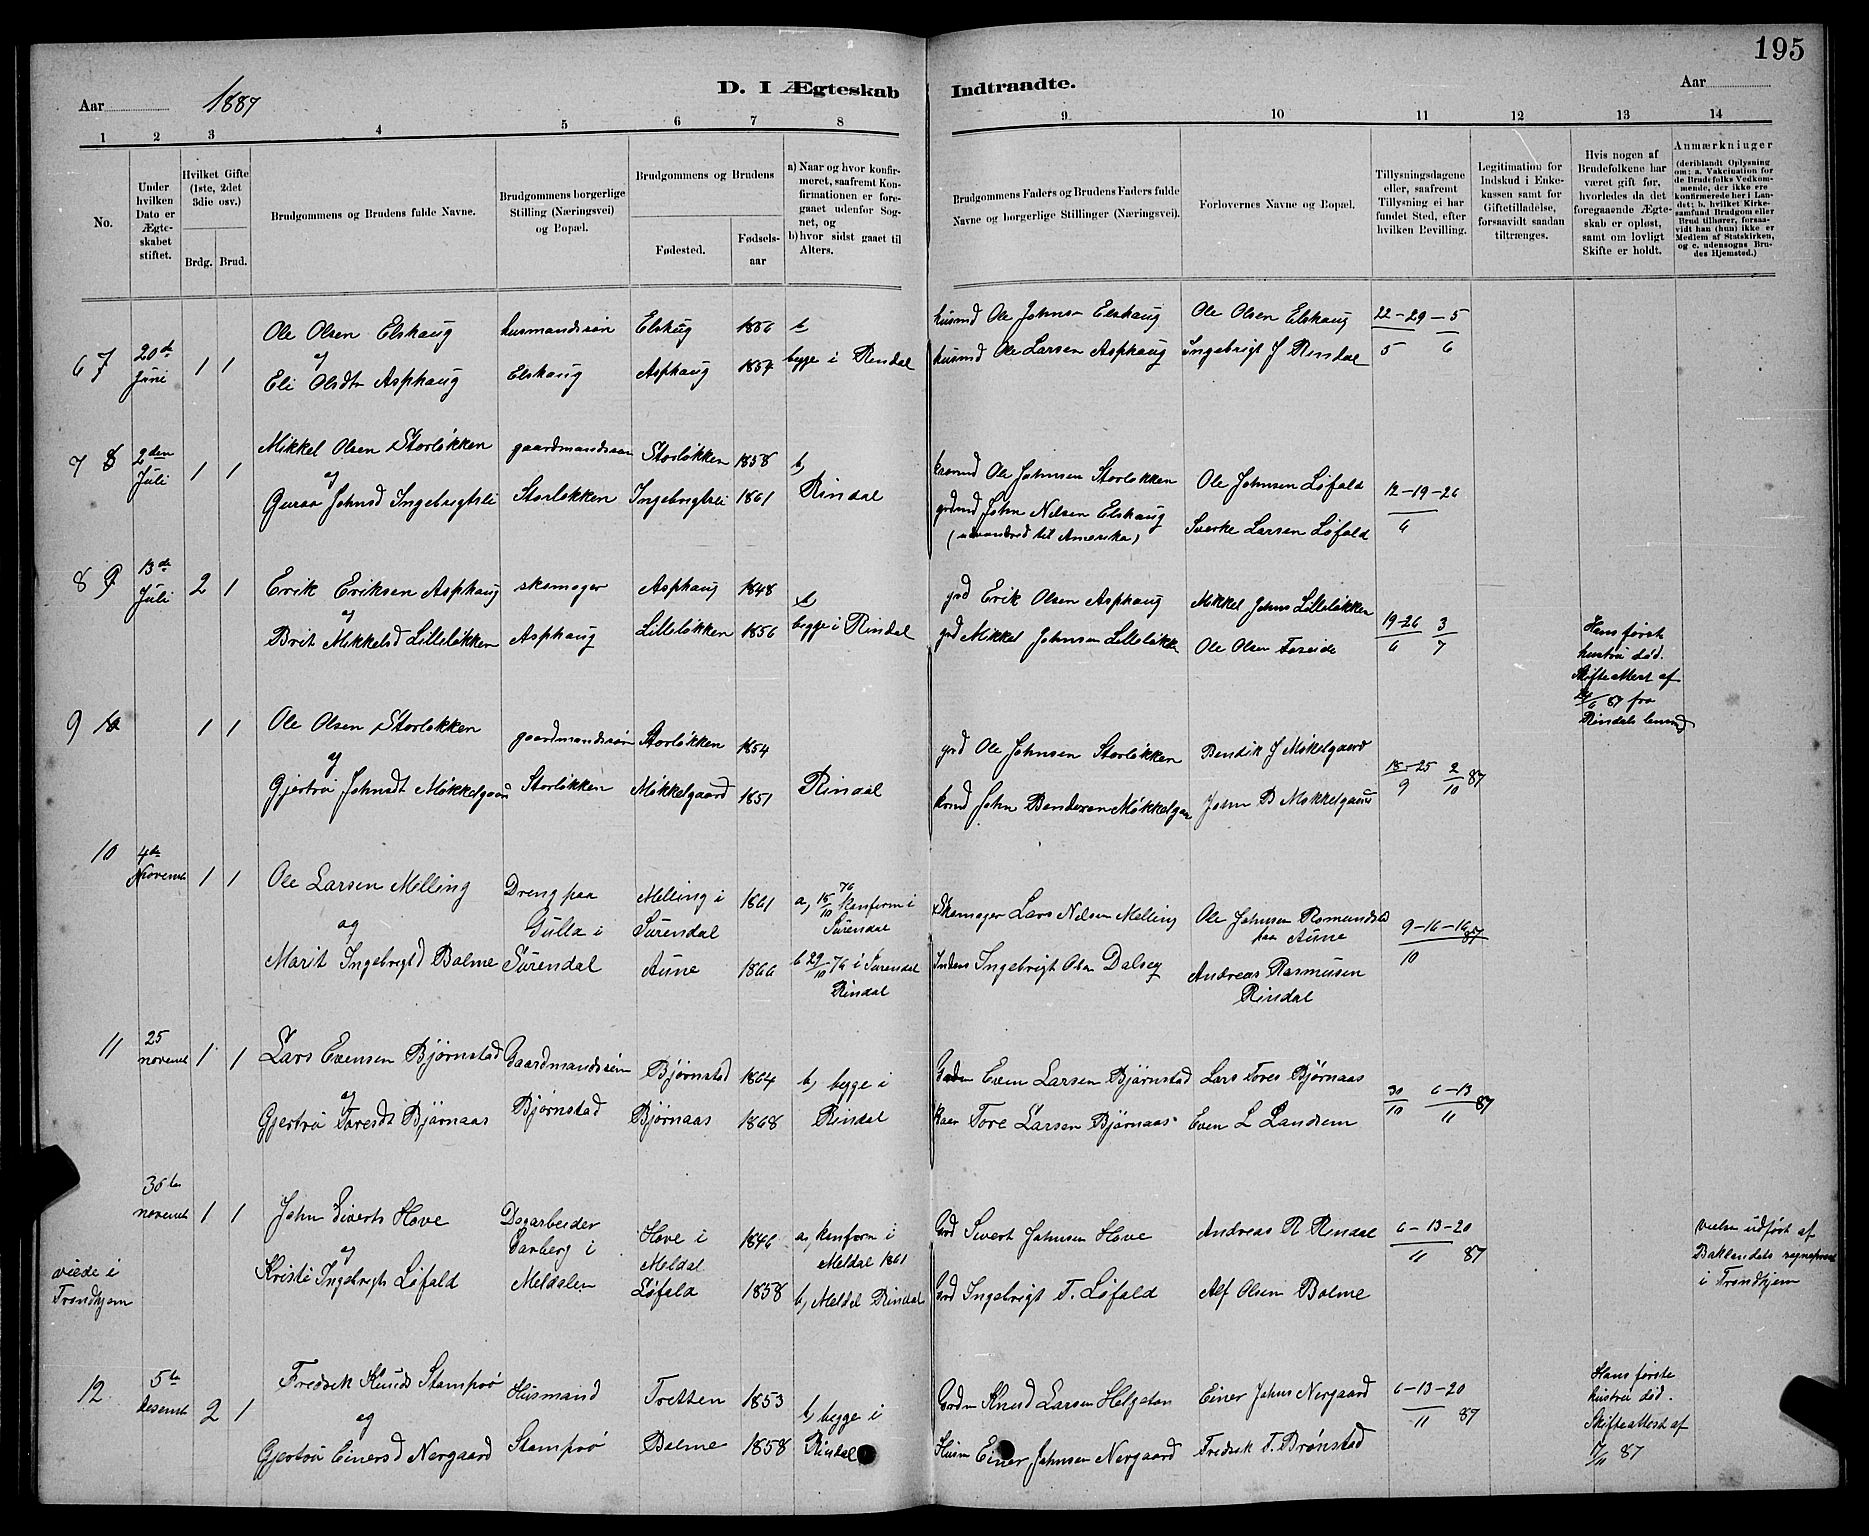 195
Aar 1887
D. I Ægteskab Indtraadte.
Aar
1 2 3 4 5 6 7 8 9. 10 11 12 13 14
No.
Under hvilken Dato er Ægteskabet stiftet.
Hvilket Gifte (1ste, 2det 3die osv.)
Brdg. Brud.
Brudgommens og Brudens fulde Navne.
Brudgommens borgerlige Stilling (Næringsvei) og Bopæl.
Brudgommens og Brudens
Fødested.
Fødselsaar
a) Naar og hvor konfirmeret, saafremt Konfirmationen er foregaaet udenfor Sognet, og
b) hvor sidst gaaet til Alters.
Brudgommens Faders og Brudens Faders fulde Navne og borgerlige Stillinger (Næringsvei).
Forlovernes Navne og Bopæl.
Tillysningsdagene eller, saafremt Tillysning ei har fundet Sted, efter hvilken Bevilling.
Legitimation for Indskud i Enkekassen samt for Giftetilladelse, forsaavidt saadan tiltrænges.
Hvis nogen af Brudefolkene har været gift før, hvorledes da det foregaaende Ægteskab er opløst, samt om lovligt Skifte er holdt.
Anmærkninger
(deriblandt Oplysning om: a. Vakcination for de Brudefolks Vedkommende, der ikke ere konfirmerede her i Landet; b. hvilket Kirkesamfund Brudgom eller Brud tilhører, forsaavidt han (hun) ikke er Medlem af Statskirken, og c. udensogns Brudes Hjemsted.)
6 7 20de Juni 1 1
Ole Olsen Elshaug husmandssøn Elshug 1856 b
og
Eli Olsdtr Asphaug Elshaug Asphaug 1854 begge i Rindal
husmd Ole Johnsn Elshaug Ole Olsen Elshaug 22-29-5
husmd Ole Larsen Asphaug Ingebrigt J Rindal 5 6
7 8 2den Juli 1 1
Mikkel Olsen Storløkken gaardmandssøn Storløkken 1858 b,
og
Guraa Johnsd Ingebrigtsli Storløkken Ingebrigtsli 1861 Rindal
Ole Johnsen Storløkken Ole Johnsen Løfald 12-19-26
grdmd John Nilsen Elshaug Sverke Larsen Løfald 6
(udvandred til Amerika)
8 9 13de Juli 2 1
Erik Eriksen Asphaug skomager Asphaug 1848 b,
og
Brit Mikkelsd Lilleløkken Asphaug Lilleløkken 1856 begge i Rindal
grd Erik Olsen Asphaug Mikkel Johns Lilleløkken 19-26 3
grd Mikkel Johnsen Lilleløkken Ole Olsen Foseide 6 7
Hans først
hustru død.
Skifteattest af
87 fra
Rindals lensmd
9 10 1 1
Ole Olsen Storløkken gaardmandssøn Storløkken 1854
og
Gjertru Johnsdt Møkkelgaard Storløkken Møkkelgaard 1851 Rindal
grd Ole Johnsen Storløkken Bendik J Møkelgaard 18-25 2 87
John Bendixen Møkkelgaa John B Møkkelgaard 9 10
10 4de Novemb 1 1
Ole Larsen Melling Dreng paa Melling i 1861 a, 15/10 76 konform i
og Gulla i Surendal Surendal
Marit Ingebrigtsd Bolme Surendal Aune 1866 b 29/10 76 i Surendal
Rindal
Skomager Lars Nilsen Melling Ole Johnsen Romundstd 9-16-16 87
paa Aune 10
Inders Ingebrigt Olsn Dalseg Andreas Rasmusen
Rindal
11 25 novemb 1 1
Lars Evensen Bjørnstad Gaardmandssøn Bjørnstad 1864 b, begge i
og
Gjertru Toresdt Bjørnaas Bjørnstad Bjørnaas 1868 Rindal
Even Larsen Bjørnstad Lars Tores Bjørnaas 30 6-13 87
Kaar Tore Larsen Bjørnaas Even L Landsem 10 11
30te novemb 1 1
John Siverts Hove Dagarbeider Hove i 1846 a, konform i
og i Meldal Meldal 1861
Kristi Ingebrigts Løfald Meldalen Løfald 1858 b, Meldal Rindal
viede i
Trondhjem
Grd Sivert Johnsen Hove Andreas R Rindal 6-13-20
11 87
Grd Ingebrigt T. Løfald Alf Olsen Bolme
vielse udført af
Baklandets sogneprest
i Trondhjem
12 5te desemb 2 1
Fredrik Knuds Stamprø Husmand Tretten 1853 b, begge i
og
Gjertru Einersd Nergaard Stamprø Bolme 1858 Rindal
Knud Larsen Helgetun Einer Johns Nergaard 6-13-20
11 87
Husm Einer Johnsen Nergaard Fredrik T. Brønstad
Hans første
hustru død.
Skifteattest af
17/11 87